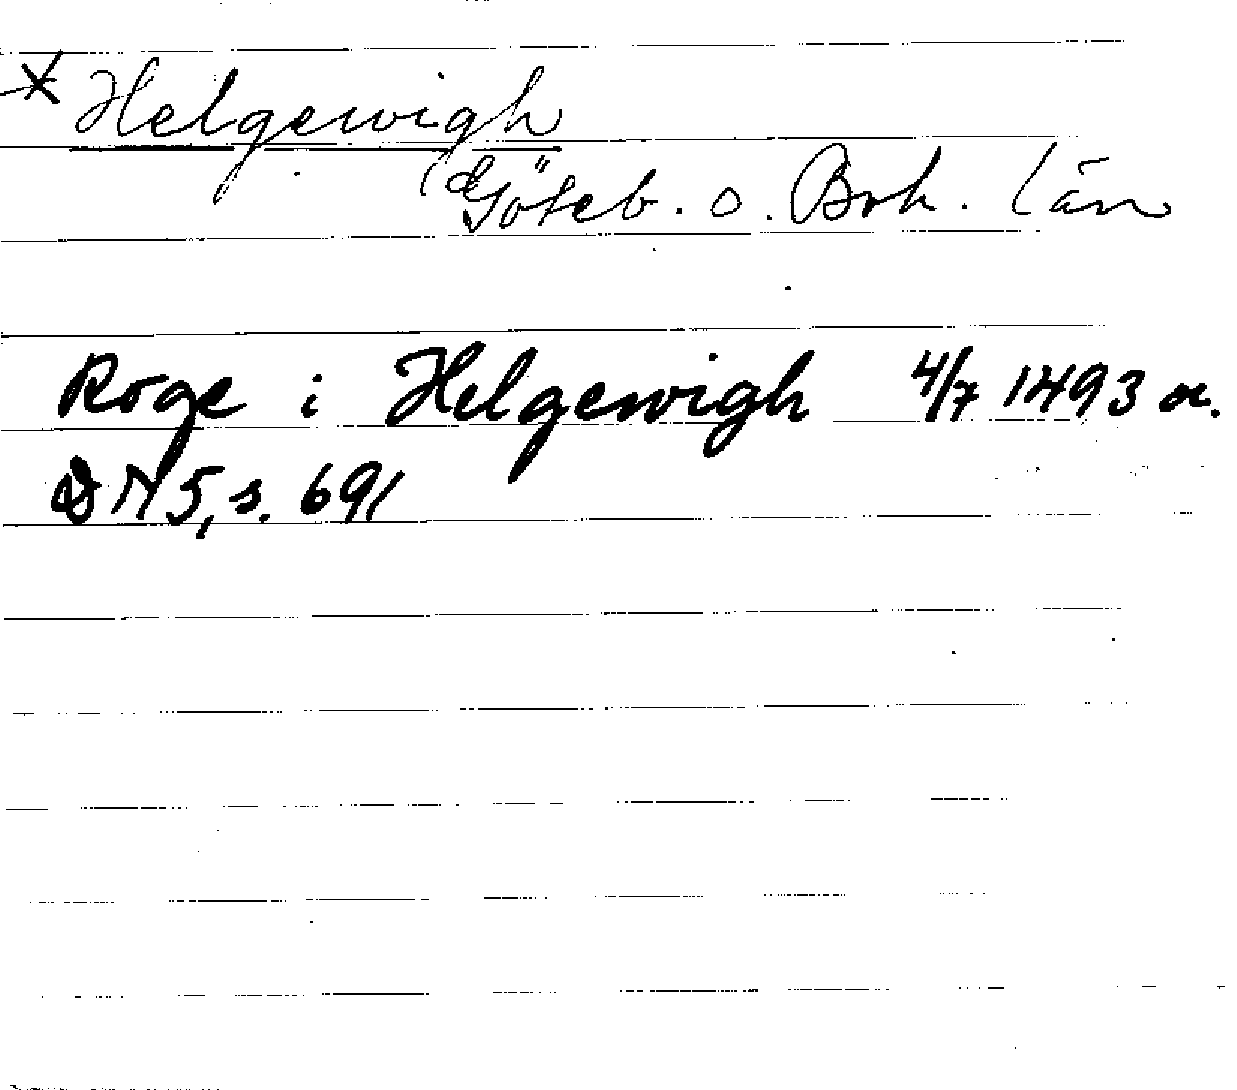 * Helgewigh
Göteb. o. Boh. län
Roge i Helgewigh 4/7 1493 or.
DN 5, s. 691